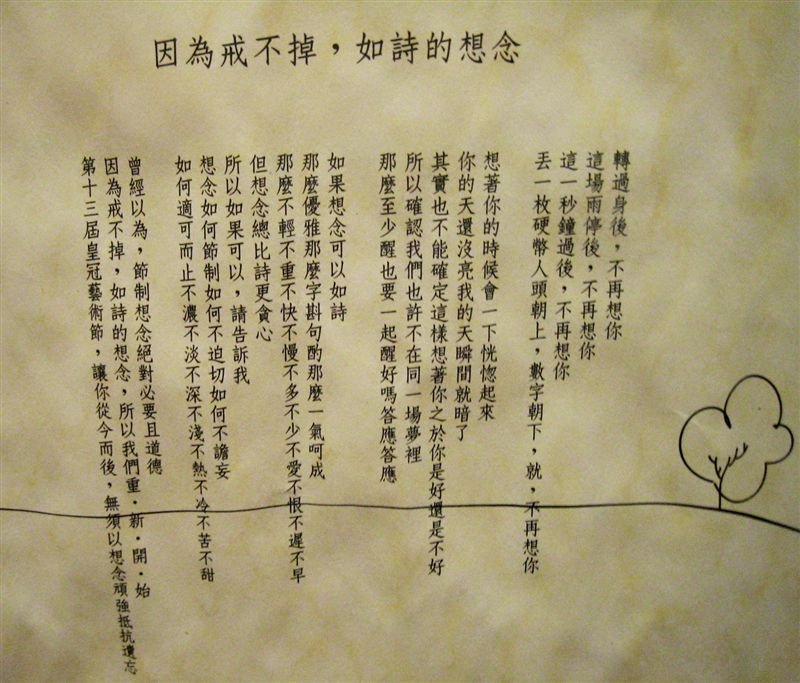 因為戒不掉，如詩的想念
轉過身後，不再想你
這場雨停後，不再想你
這一秒鐘過後，不再想你
丟一枚硬幣人頭朝上，數字朝下，就，不再想你
想著你的時候會一下恍惚起來
你的天還沒亮我的天瞬間就暗了
其實也不能確定這樣想著你之於你是好還是不好
所以確認我們也許不在同一場夢裡
那麼至少醒也要一起醒好嗎答應答應
如果想念可以如詩
那麼優雅那麼字斟句酌那麼一氣呵成
那麼不輕不重不快不慢不多不少不愛不恨不遲不早
但想念總比詩更貪心
所以如果可以，請告訴我
想念如何節制如何不迫切如何不譫妄
如何適可而止不濃不淡不深不淺不熱不冷不苦不甜
曾經以為，節制想念絕對必要且道德
因為戒不掉，如詩的想念，所以我們重．新．開．始
第十三屆皇冠藝術節，讓你從今而後，無須以想念頑強抵抗遺忘